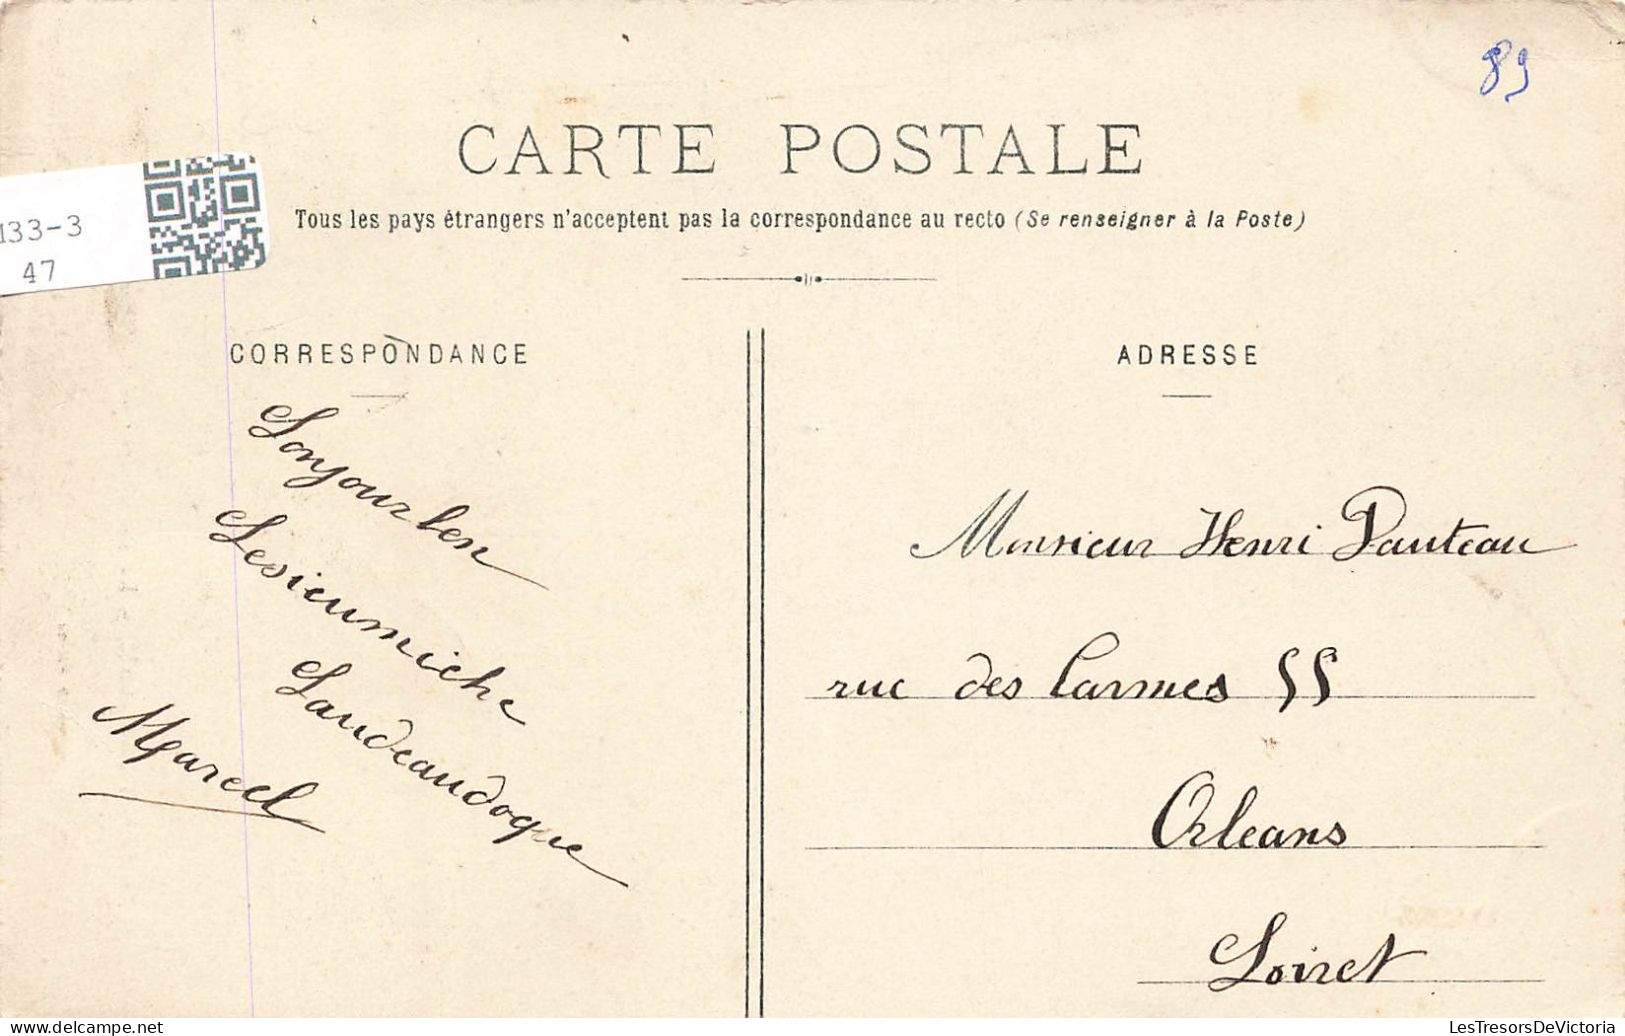 89
CARTE POSTALE
Tous les pays étrangers n'acceptent pas la correspondance au recto (Se renseigner à la Poste)
133-3
47
CORRESPONDANCE
Sonjourlen
Lesieumiche
Landeaudogue
Marcel
ADRESSE
Monsieur Henri Pauteau
rue des Carmes 55
Orleans
Loiret
LesTresorsDeVictoria